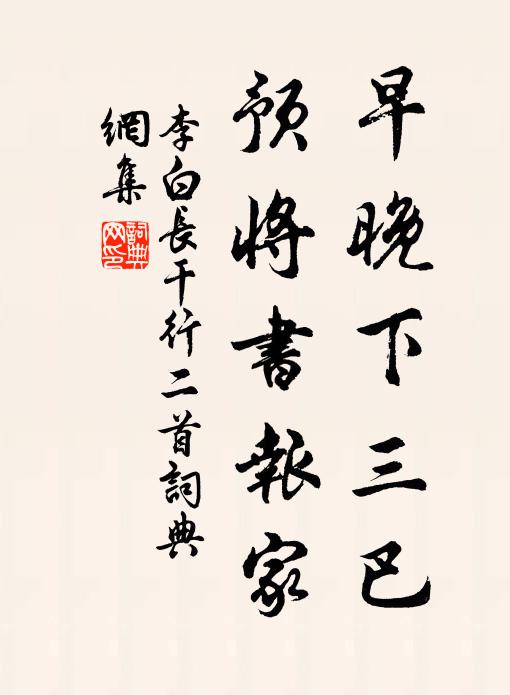 早晚下三巴
預將書報家
李白長干行二首詞典
網集
詞典網印